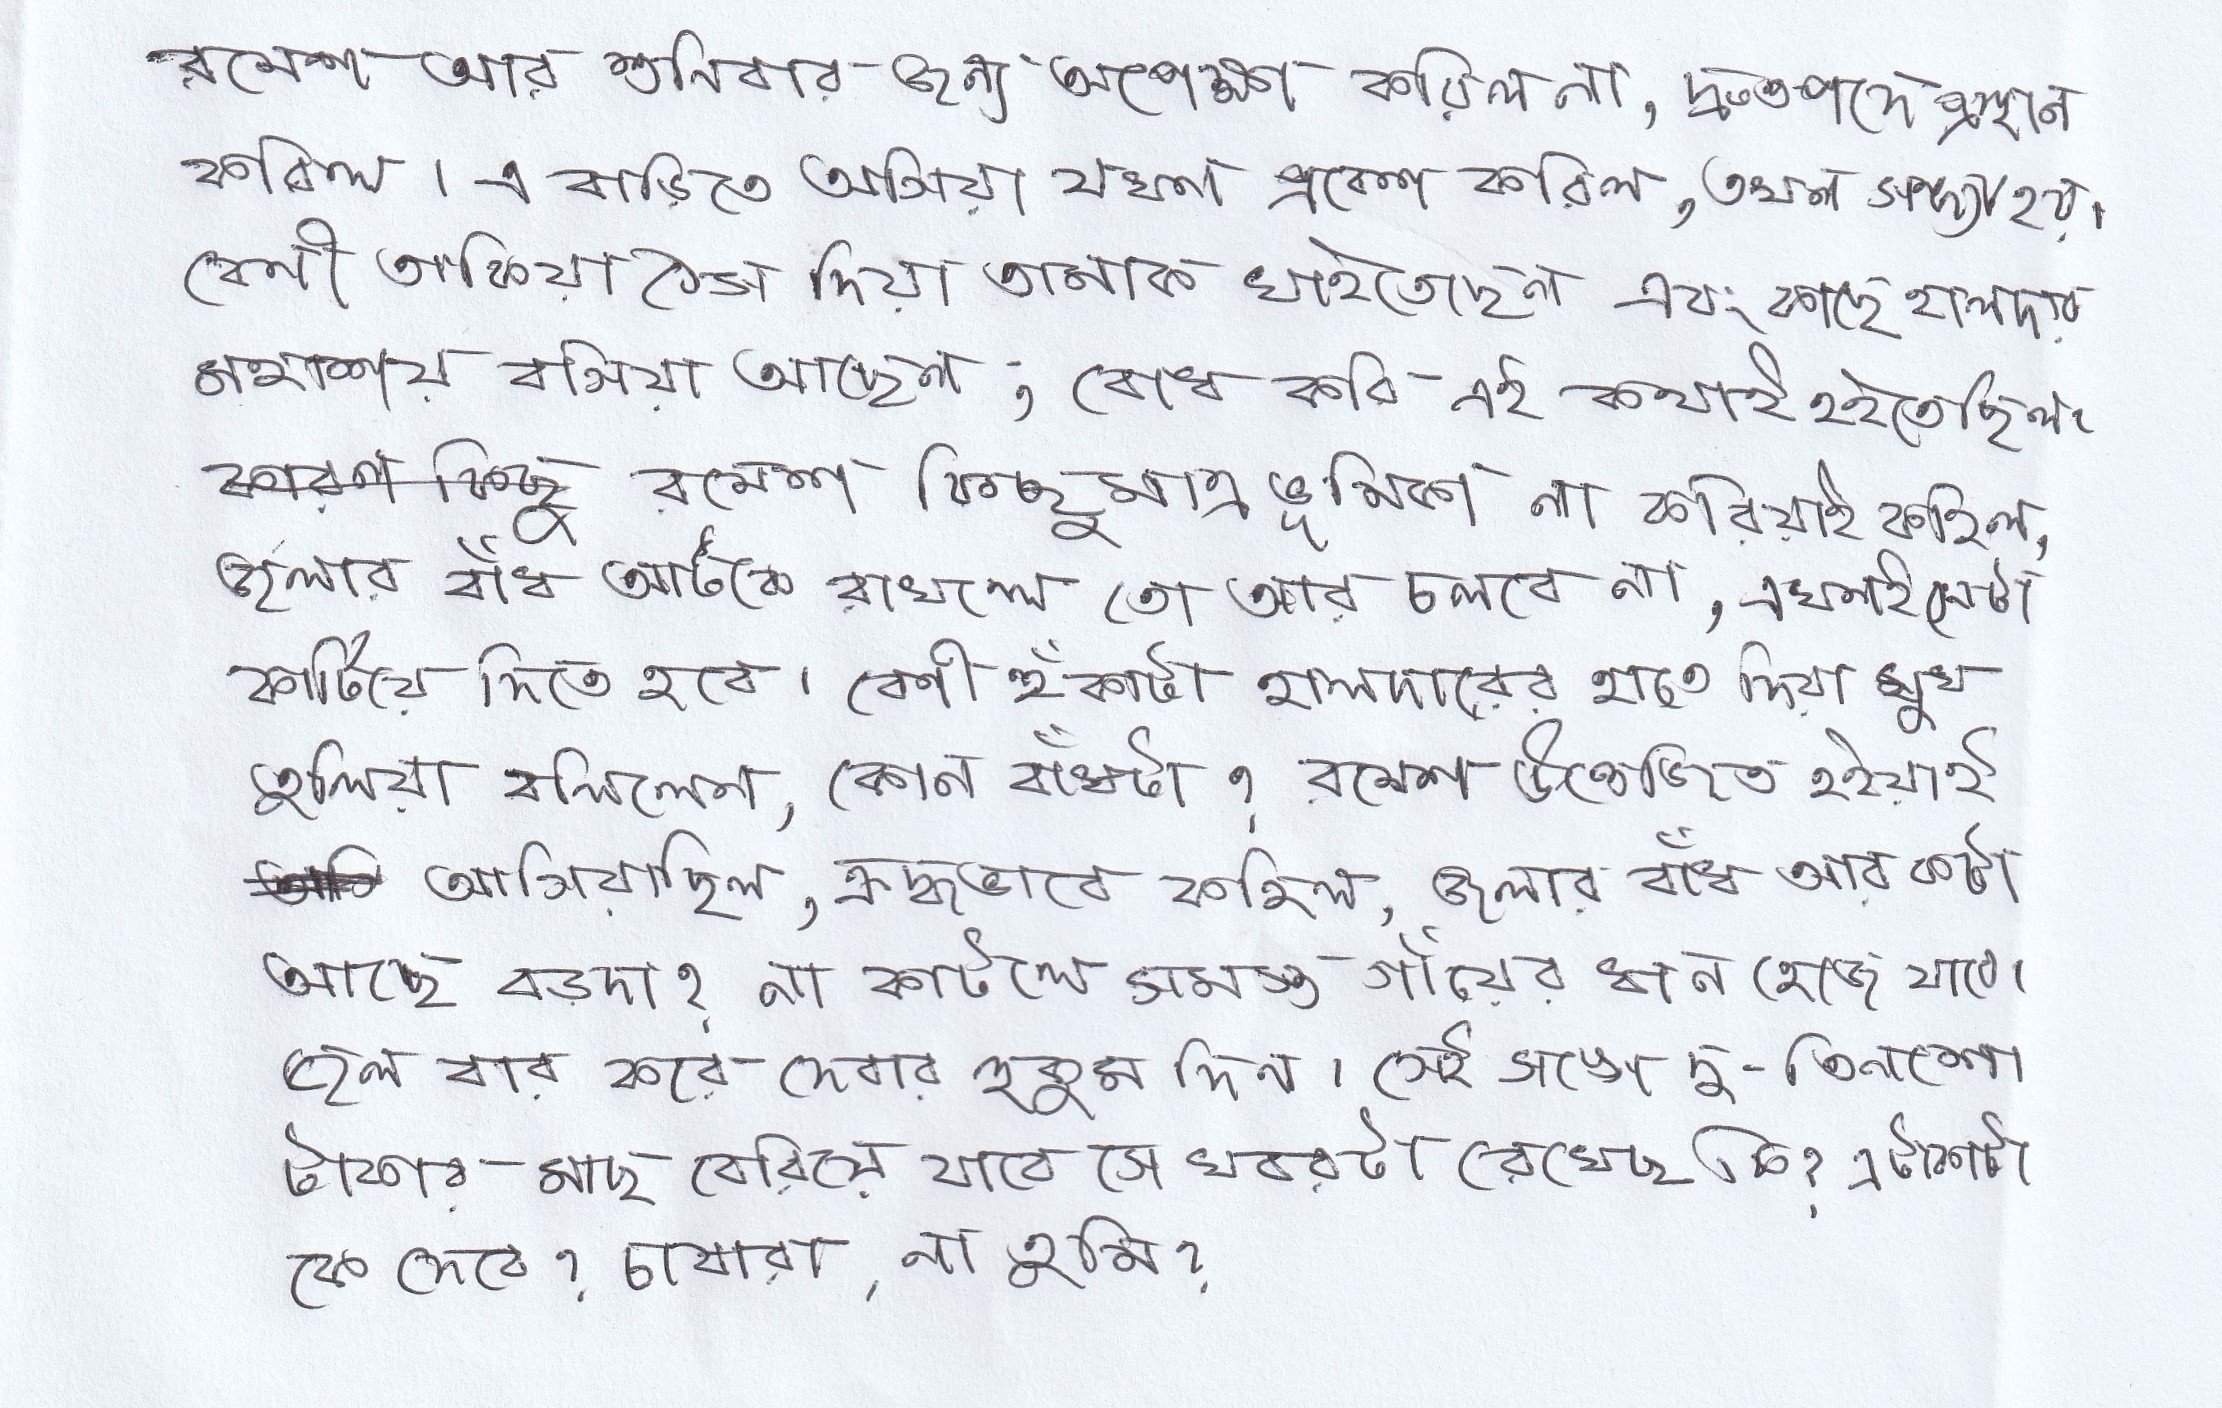 রমেশ আর শুনিবার জন্য অপেক্ষা করিল না, দ্রুতপদে প্রস্থান
করিল। এ বাড়িতে আসিয়া যখন প্রবেশ করিল, তখন সন্ধ্যা হয়।
বেণী তাকিয়া ঠেস দিয়া তামাক খাইতেছেন এবং কাছে হালদার
মহাশয় বসিয়া আছেন; বোধ করি এই কথাই হইতেছিল।
কারণ কিছু রমেশ কিছুমাত্র ভূমিকা না করিয়াই কহিল,
জলার বাঁধ আটকে রাখলে তো আর চলবে না, এখনই সেটা
কাটিয়ে দিতে হবে। বেণী হুঁকাটা হালদারের হাতে দিয়া মুখ
তুলিয়া বলিলেন, কোন বাঁধটা? রমেশ উত্তেজিত হইয়াই
আসিয়াছিল, ক্রুদ্ধভাবে কহিল, জলার বাঁধ আর কটা
আছে বড়দা? না কাটলে সমস্ত গাঁয়ের ধান হেজে যাবে।
জল বার করে দেবার হুকুম দিন। সেই সঙ্গে দু-তিনশো
টাকার মাছ বেরিয়ে যাবে সে খবরটা রেখেছ কি? এ টাকাটা
কে দেবে? চাষারা, না তুমি?